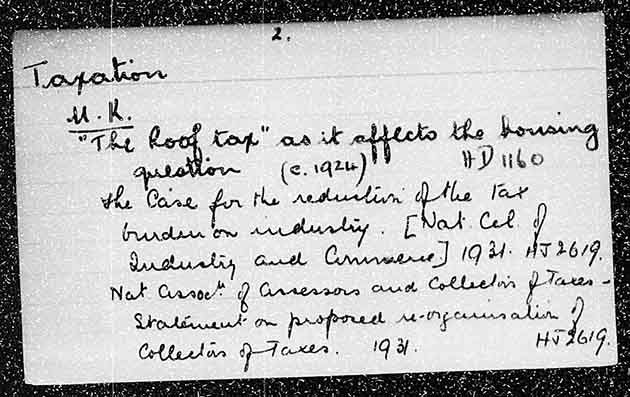 2.
Taxation
U.K.
"The Roof tax" as it affects the housing
question (c. 1924) HD 1160
The Case for the reduction of the tax
burden on industry. [Nat. Ccl. of
Industry and Commerce] 1931. HJ 2619.
Nat Assocn. of Assessors and Collectors of Taxes -
Statement on proposed re-organisation of
Collectors of Taxes. 1931. HJ 2619.